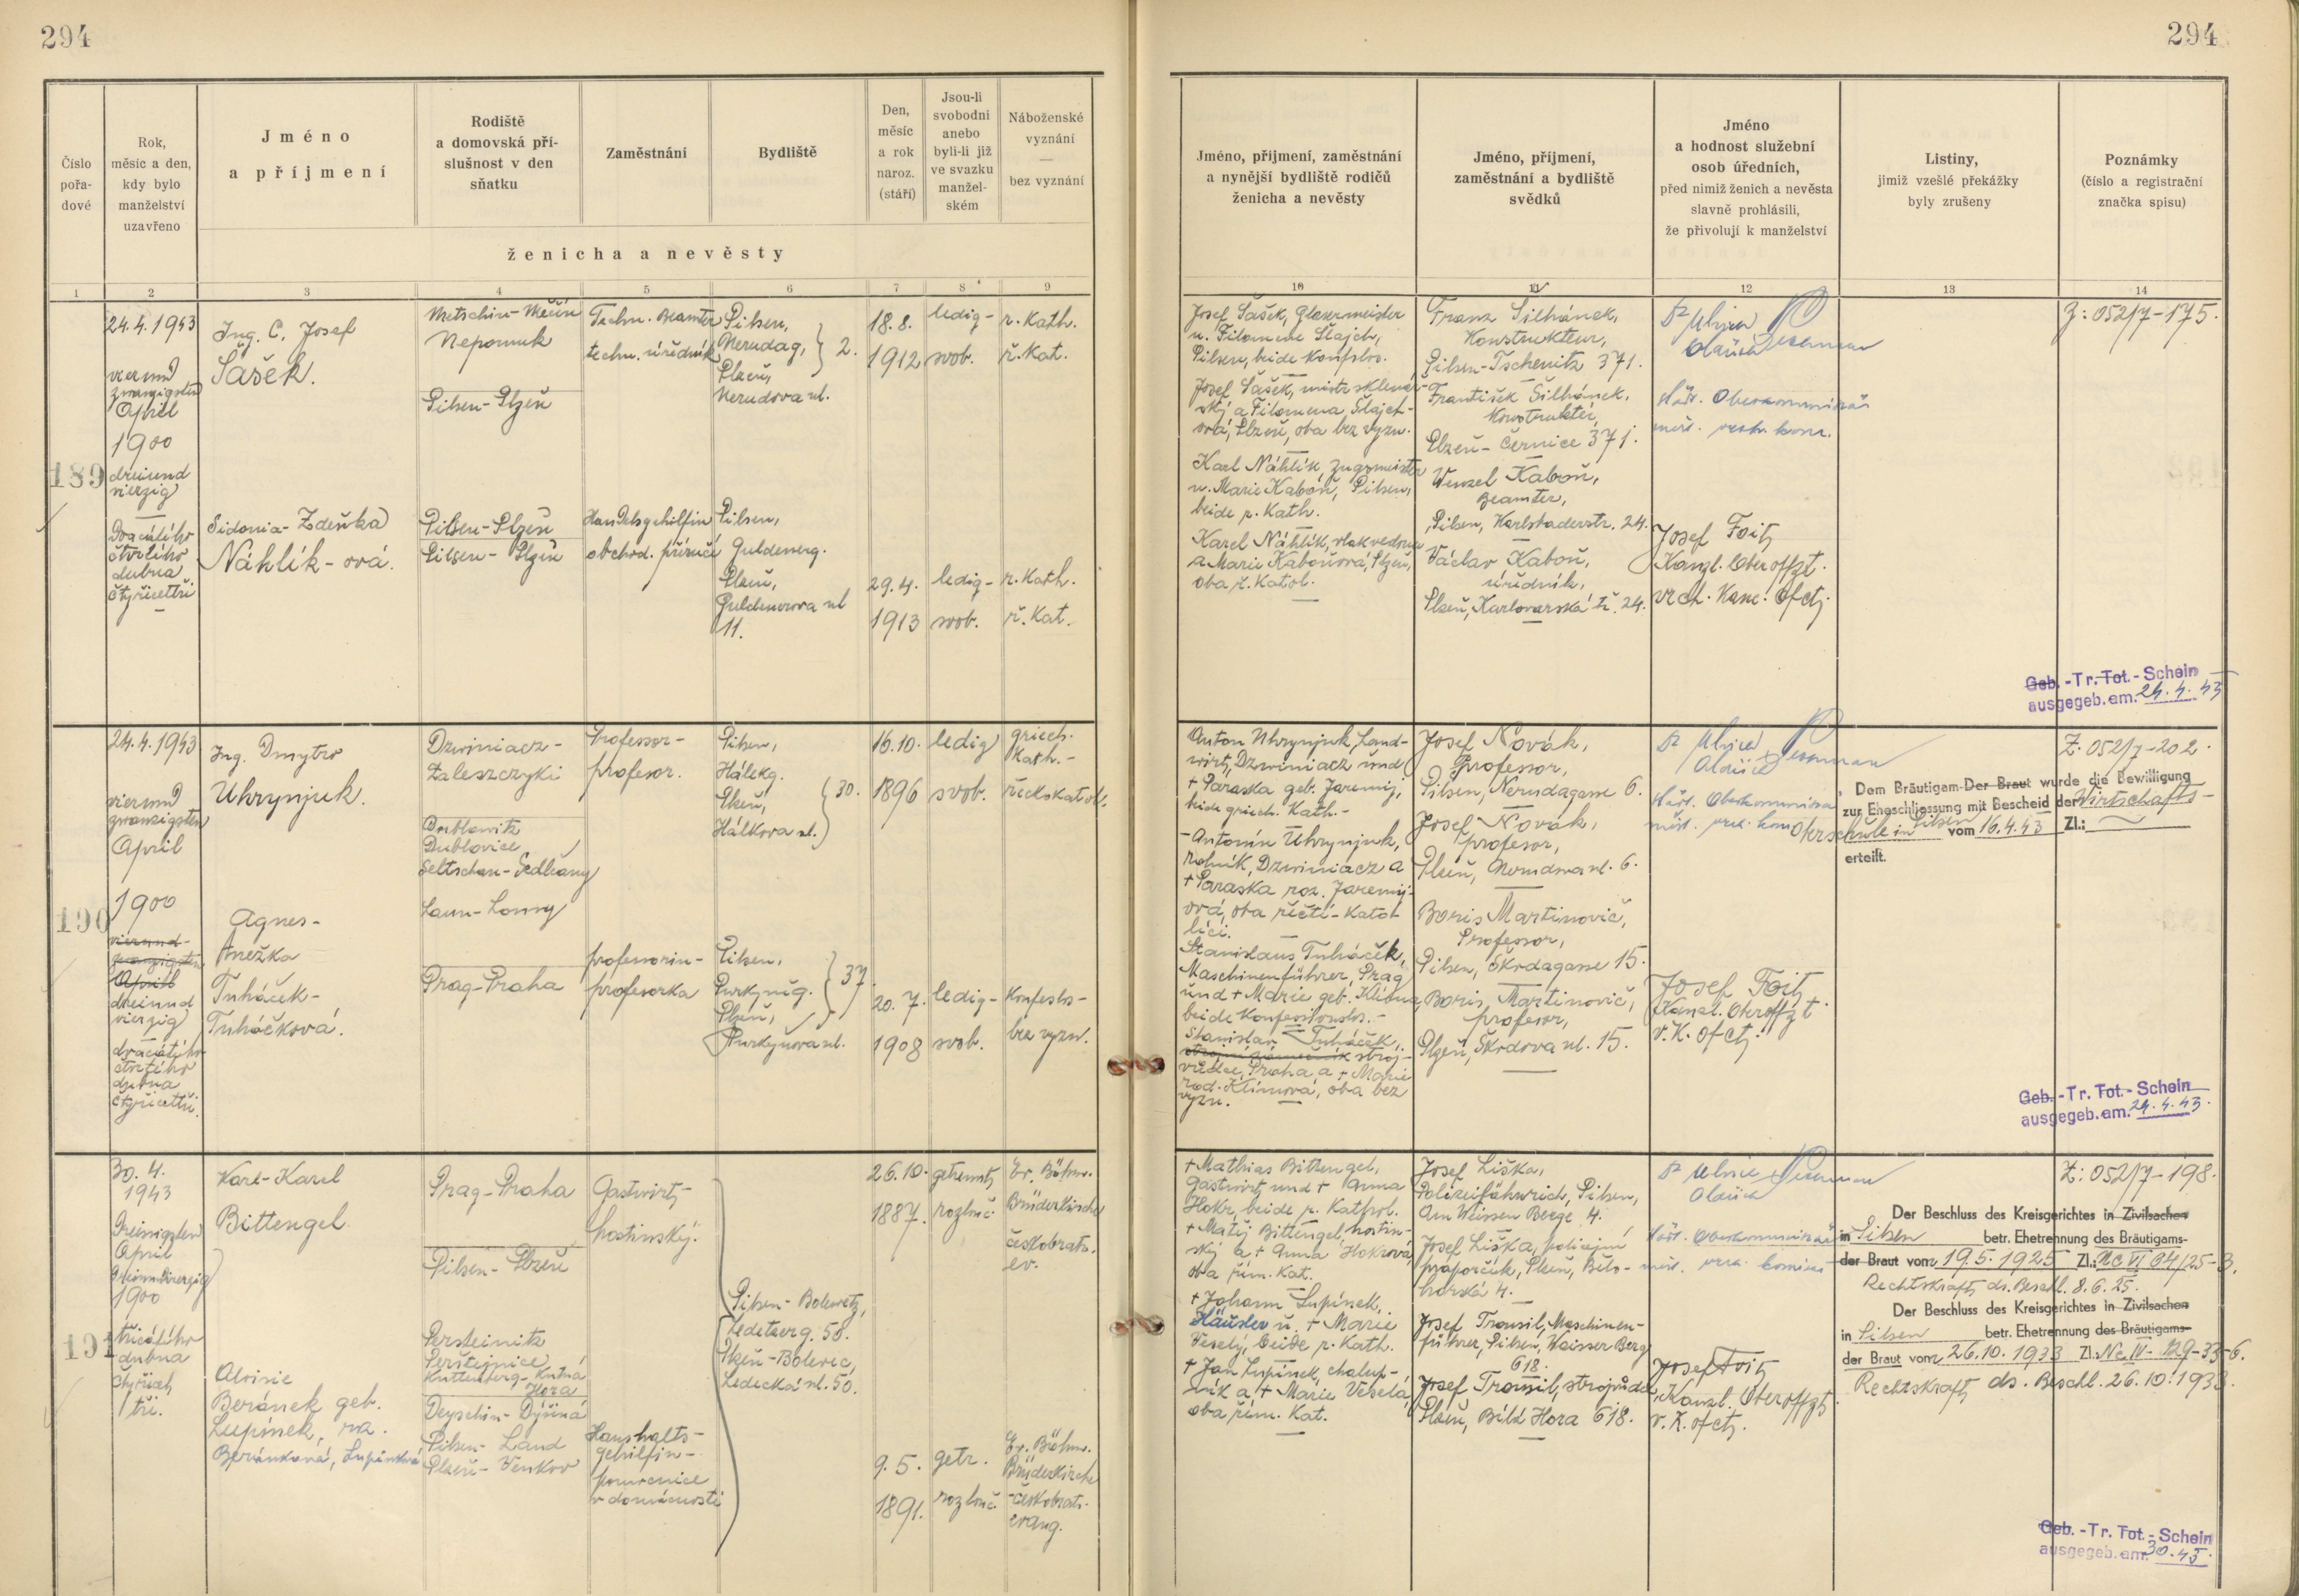 294
294
Číslo
pořa-
dové
Rok,
měsíc a den,
kdy bylo
manželství
uzavřeno
Jméno
a příjmení
Rodiště
a domovská pří-
slušnost v den
sňatku
Zaměstnání
Bydliště
Den,
měsíc
a rok
naroz.
(stáří)
Jsou-li
svobodni
anebo
byli-li již
ve svazku
manžel-
ském
Náboženské
vyznání
—
bez vyznání
ženicha a nevěsty
Jméno, příjmení, zaměstnání
a nynější bydliště rodičů
ženicha a nevěsty
Jméno, příjmení,
zaměstnání a bydliště
svědků
Jméno
a hodnost služební
osob úředních,
před nimiž ženich a nevěsta
slavně prohlásili,
že přivolují k manželství
Listiny,
jimiž vzešlé překážky
byly zrušeny
Poznámky
(číslo a registrační
značka spisu)
1 2 3 4 5 6 7 8 9
10 11 12 13 14
189
24.4.1943
vierund
zwanzigsten
April
1900
dreiund
vierzig
Dvacátého
čtvrtého
dubna
čtyřicettři
Ing. C. Josef
Šašek.
Sidonia-Zdeňka
Náhlík-ová.
Metschin-Měčín
Nepomuk
Pilsen-Plzeň
Pilsen-Plzeň
Pilsen-Plzeň
Techn. Beamter
techn. úředník
Handelsgehilfin
obchod. příručí
Pilsen,
Nerudag, 2.
Plzeň,
Nerudova ul.
Pilsen,
Guldenerg.
Plzeň,
Guldenerova ul
11.
18.8.
1912
29.4.
1913
ledig-
svob.
ledig-
svob.
r. Kath.
ř. Kat.
r. Kath.
ř. Kat.
Josef Šašek, Glasermeister
u. Filomena Šlajch,
Pilsen, beide Konfslos.
Josef Šašek, mistr sklenář-
ský a Filomena Šlajch-
ová, Plzeň, oba bez vyzn.
Karl Náhlík, Zugsmeister
u. Marie Kaboň, Pilsen,
beide r. Kath.
Karel Náhlík, vlakvedoucí
a Marie Kaboňová, Plzeň,
oba ř. Katol.
Franz Šilhánek,
Konstrukteur,
Pilsen-Tschernitz 371.
František Šilhánek,
Konstruktér,
Plzeň-Černice 371.
Wenzel Kaboň,
Beamter,
Pilsen, Karlsbaderstr. 24.
Václav Kaboň,
úředník,
Plzeň, Karlovarská tř. 24.
Josef Foit,
Kanzl. Oberoffzt.
vrch. Kanc. Ofct.
Z: 052/7-175.
Geb.-Tr. Tot.-Schein
ausgegeb. am. 24.4.43
190
24.4.1943
vierund
zwanzigsten
April
1900
vierund-
zwanzigsten
April
dreiund
vierzig
dvacátého
čtvrtého
dubna
čtyřicettři.
Ing. Dmytro
Uhrynjuk.
Agnes-
Anežka
Tuháček-
Tuháčková.
Dzwiniacz-
Zaleszczyki
Dublowitz
Dublovice
Seltschan-Sedlčany
Laun-Louny
Prag-Praha
Professor-
profesor.
professorin-
profesorka
Pilsen,
Hálekg.
Plzeň, 30.
Hálkova ul.
Pilsen,
Purkyněg. 37
Plzeň,
Purkyňova ul.
16.10.
1896
20.7.
1908
ledig
svob.
ledig-
svob.
griech.
Kath.-
řeckokatol.
Konfeslos-
bez vyzn.
Anton Uhrynjuk, Land-
wirt, Dzwiniacz und
+ Paraska geb. Jaremij,
beide griech. Kath.-
- Antonín Uhrynjuk,
rolník, Dzwiniacz a
+ Paraska roz. Jaremij-
ová, oba řečtí-kato-
líci.
Stanislaus Tuháček,
Maschinenführer, Prag
und + Marie geb. Klíma,
beide Konfessionslos.-
Stanislav Tuháček,
stroj-
vůdce, Praha a + Marie
rod. Klímová, oba bez
vyzn.
Josef Novák,
Professor,
Pilsen, Nerudagasse 6.
Josef Novák,
profesor,
Plzeň, Nerudova ul. 6.
Boris Martinovič,
Professor,
Pilsen, Škrdagasse 15.
Boris Martinovič,
profesor,
Plzeň, Škrdova ul. 15.
Josef Foit,
Kanzl. Oberoffzt.
v. K. Ofct.
Dem Bräutigam-Der Braut wurde die Bewilligung
zur Eheschliessung mit Bescheid der Wirtschafts-
oberschule in Pilsen vom 16.4.43 Zl.:
erteilt.
Z: 052/7-202.
Geb.-Tr. Tot.-Schein
ausgegeb. am. 24.4.43.
191
30.4.
1943
Dreissigsten
April
1900
třicátého
dubna
čtyřicet
tři.
Karl-Karel
Bittengel
Aloisie
Beránek geb.
Lupínek, roz.
Beránková, Lupínková
Prag-Praha
Pilsen-Plzeň
Persteinitz
Perštejnice
Kuttenberg-Kutná
Hora
Deyschin-Dýšiná
Pilsen-Land
Plzeň-Venkov
Gastwirt-
hostinský.
Haushalts-
gehilfin-
pomocnice
v domácnosti
Pilsen-Bolewetz,
Ledetzerg. 50.
Plzeň-Bolevec,
Ledecká ul. 50.
26.10.
1887.
9.5.
1891.
getrennt
rozluč.
getr.
rozluč.
Ev. Böhm.
Brüderkirche
českobratr.
ev.
Ev. Böhm.
Brüderkirche
-českobratr.
evang.
+ Mathias Bittengel,
Gastwirt und + Anna
Hokr, beide r. Kathol.
+ Matěj Bittengel, hostin-
ský a + Anna Hokrová,
oba řím. Kat.
+ Johann Lupínek,
Häusler u. + Marie
Veselý, beide r. Kath.
+ Jan Lupínek, chalup-
ník a + Marie Veselá,
oba řím. Kat.
Josef Liška,
Polizeifähnrich, Pilsen,
Am Weissen Berge 4.
Josef Liška, policejní
praporčík, Plzeň, Bělo-
horská 4.
Josef Trousil, Maschinen-
führer, Pilsen, Weisser Berg
618.
Josef Trousil, strojvůdce
Plzeň, Bílá Hora 618.
Josef Foit,
Kanzl. Oberoffzt.
v. K. Ofct.
Der Beschluss des Kreisgerichtes in Zivilsachen
in Pilsen betr. Ehetrennung des Bräutigams-
der Braut vom 19.5.1925 Zl.: Nc VI 84/25-3.
Rechtskraft ds. Beschl. 8.6.25.
Der Beschluss des Kreisgerichtes in Zivilsachen
in Pilsen betr. Ehetrennung des Bräutigams-
der Braut vom 26.10.1933 Zl.: Nc IV-129-33-6.
Rechtskraft ds. Beschl. 26.10.1933.
Z: 052/7-198.
Geb.-Tr. Tot.-Schein
ausgegeb. am.